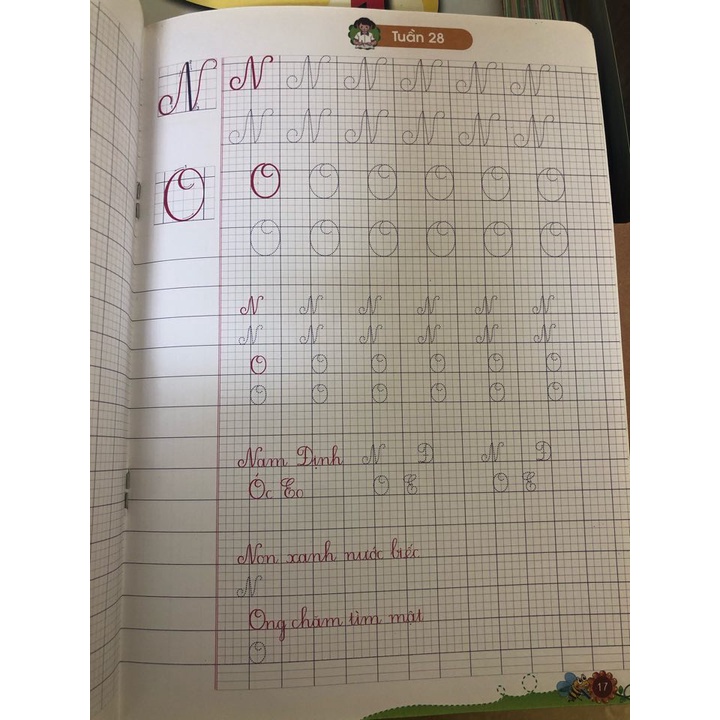 Tuần 28
N N N N N N N
N N N N N N
O O O O O O O
O O O O O O
N N N N N N
N N N N N N
O O O O O O
O O O O O O
Nam Định N Đ N Đ
Óc Eo O E O E
Non xanh nước biếc
N
Ong chăm tìm mật
O
17